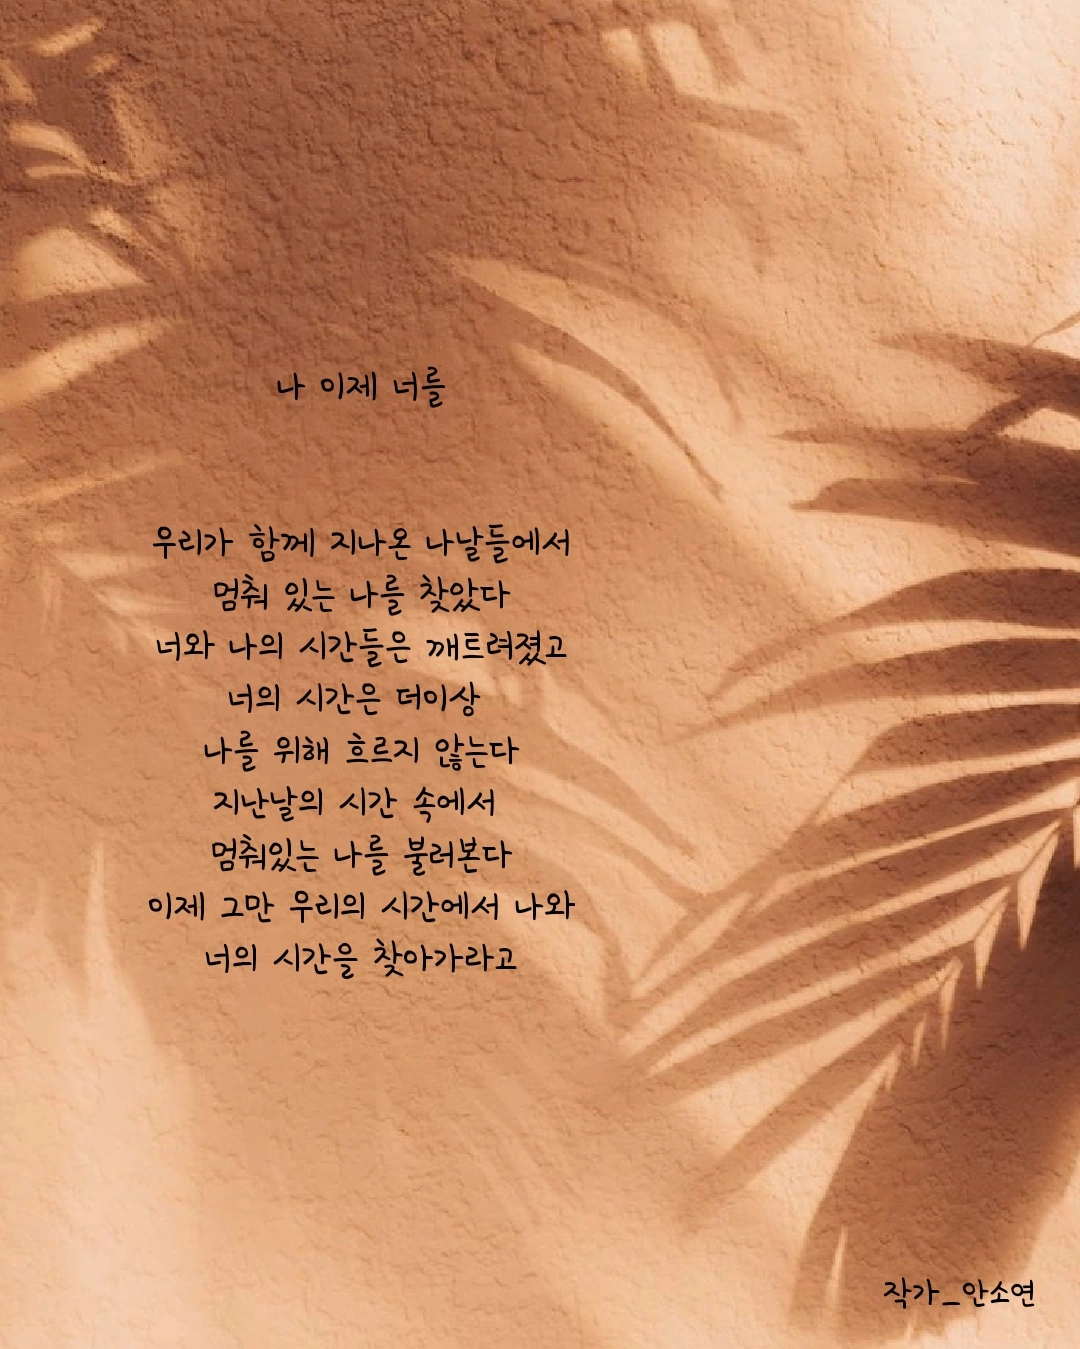 나 이제 너를
우리가 함께 지나온 나날들에서
멈춰 있는 나를 찾았다
너와 나의 시간들은 깨트려졌고
너의 시간은 더이상
나를 위해 흐르지 않는다
지난날의 시간 속에서
멈춰있는 나를 불러본다
이제 그만 우리의 시간에서 나와
너의 시간을 찾아가라고
작가_안소연